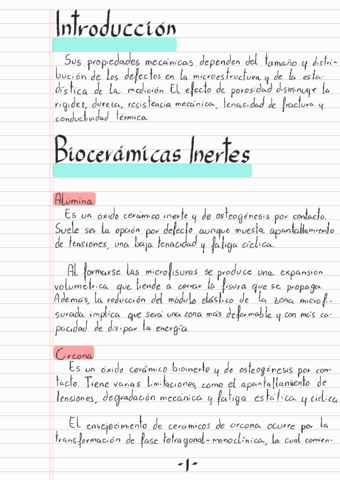 Introducción
Sus propiedades mecánicas dependen del tamaño y distri-
bución de los defectos en la microestructura y de la esta-
dística de la medición. El efecto de porosidad disminuye la
rigidez, dureza, resistencia mecánica, tenacidad de fractura y
conductividad térmica.
Biocerámicas Inertes
Alúmina
Es un óxido cerámico inerte y de osteogénesis por contacto.
Suele ser la opción por defecto aunque muestra apantallamiento
de tensiones, una baja tenacidad y fatiga cíclica.
Al formarse las microfisuras se produce una expansión
volumétrica que tiende a cerrar la fisura que se propaga.
Además, la reducción del módulo elástico de la zona microfi-
surada implica que será una zona más deformable y con más ca-
pacidad de disipar la energía.
Circona
Es un óxido cerámico bioinerte y de osteogénesis por con-
tacto. Tiene varias limitaciones como el apantallamiento de
tensiones, degradación mecánica y fatiga estática y cíclica
El envejecimiento de cerámicos de circona ocurre por la
transformación de fase tetragonal-monoclínica, la cual comien-
-1-